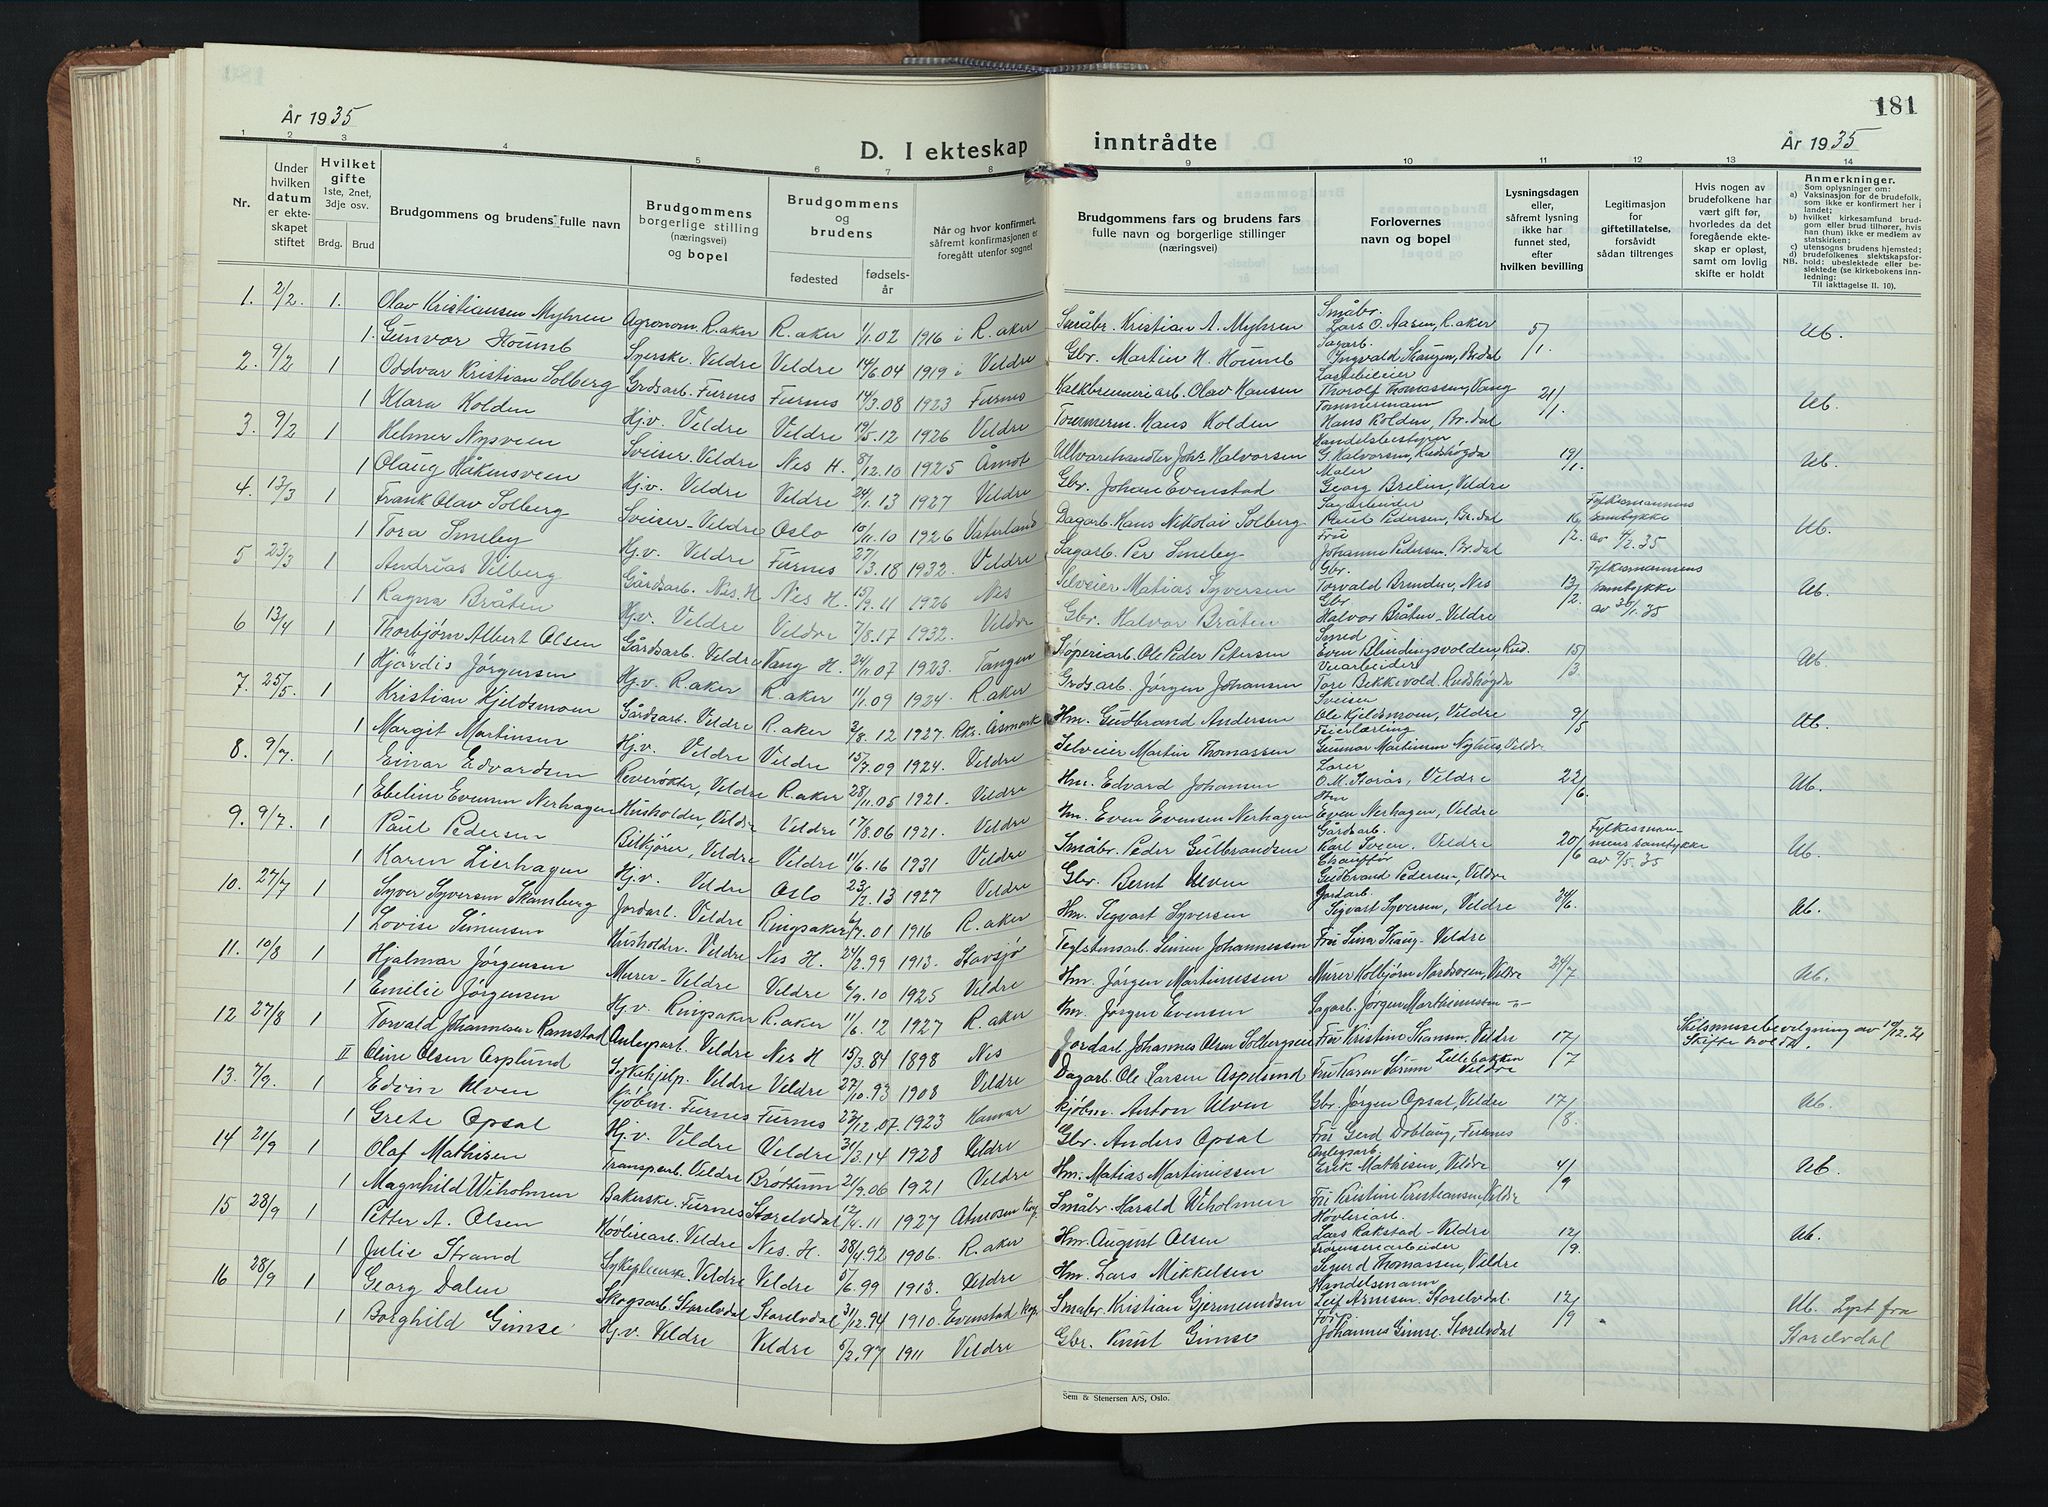 181
År 1935
D. I ekteskap inntrådte
År 1935
1 2 3 4 5 6 7 8 9 10 11 12 13 14
Nr.
Under hvilken datum er ekteskapet stiftet
Hvilket gifte 1ste, 2net, 3dje osv.
Brdg. Brud
Brudgommens og brudens fulle navn
Brudgommens borgerlige stilling (næringsvei) og bopel
Brudgommens og brudens
fødested
fødselsår
Når og hvor konfirmert, såfremt konfirmasjonen er foregått utenfor sognet
Brudgommens fars og brudens fars fulle navn og borgerlige stillinger (næringsvei)
Forlovernes navn og bopel
Lysningsdagen eller, såfremt lysning ikke har funnet sted, efter hvilken bevilling
Legitimasjon for giftetillatelse, forsåvidt sådan tiltrenges
Hvis nogen av brudefolkene har vært gift før, hvorledes da det foregående ekteskap er opløst, samt om lovlig skifte er holdt
Anmerkninger.
Som oplysninger om:
a) Vaksinasjon for de brudefolk, som ikke er konfirmert her i landet;
b) hvilket kirkesamfund brudgom eller brud tilhører, hvis han (hun) ikke er medlem av statskirken;
c) utensogns brudens hjemsted;
d) brudefolkenes slektskapsforhold: ubeslektede eller beslektede (se kirkebokens innledning:
NB. Til iakttagelse II. 10).
1. 2/2. 1. Olav Kristiansen Myhren Agronom, R.aker R.aker 1/1.02 1916 i R.aker Småbr. Kristian A. Myhren Småbr. Lars O. Aasen, R.aker 5/1. Ub.
1 Gunvor Houmb Syerske. Veldre Veldre 14/6.04 1919 i Veldre Gbr. Martin H. Houmb Sagarb. Ingvald Skaugen, Br.dal
2. 9/2 1 Oddvar Kristian Solberg Grdsarb. Furnes Furnes 14/3.08 1923 Furnes Kalkbrenneriarb. Olav Hansen Lastebileier Thorolf Thomassen, Vang 21/1. Ub.
1 Klara Holden Hj.v. Veldre Veldre 19/5.12 1926 Veldre Tømmerm. Hans Holden Tømmermann Hans Holden, Br.dal
3. 9/2 1 Helmer Nysveen Sveiser. Veldre Nes H. 8/12.10 1925 Åmot Handelsbestyrer G. Halvorsen, Rudshøgda 19/1. Ub.
1 Olaug Håkensveen Hj.v. Veldre Veldre 24/1.13 1927 Veldre Gbr. Johan Evenstad Maler Georg Brelin, Veldre
4. 13/3 1 Frank Olav Solberg Sveiser - Veldre Oslo 10/11.10 1926 Vaterland Dagarb. Hans Nikolai Solberg Sagarbeider Paul Pedersen, Br.dal 16/2. Fylkesmannens samtykke av 4/2.35 Ub.
1 Tora Smeby Hj.v. Veldre Furnes 27/3.18 1932. Veldre Sagarb. Per Smeby Frue Johanne Pedersen. Br.dal
5 23/3 1 Andreas Vilberg Gårdsarb. Nes. H Nes H. 15/9.11 1926 Nes Selveier Matias Syversen Gbr. Torvald Brenden, Nes 13/2. Fylkesmannens samtykke av 30/1.35 Ub.
1 Ragna Bråten Hj.v. Veldre Veldre 7/8.17 1932. Veldre Gbr. Halvor Bråten Gbr Halvor Bråten - Veldre
6 13/4 1 Thorbjørn Albert Olsen Gårdsarb. Veldre Vang H. 24/11.07 1923. Tangen Støperiarb. Ole Peder Petersen Smed Even Blindingsvolden, Rud. 15/3. Ub.
1 Hjørdis Jørgensen Hj.v. R.aker R.aker 11/1.09 1924. R.aker Grdsarb. Jørgen Johansen Veiarbeider Tore Bekkevold. Rudshøgda
7. 25/5. 1 Kristian Kjeldsmoen Gårdsarb. Veldre R.aker 3/8.12 1927. Rkr. Åsmark Hm. Gudbrand Andersen Sveiser Ole Kjeldsmoen, Veldre 9/5 Ub.
1 Margit Martinsen Hj.v. Veldre Veldre 15/7.09 1924. Veldre Selveier Martin Thomassen Feierlærling Gunnar Martinsen Nyhus, Veldre
8. 9/7. 1 Einar Edvardsen Reverøkter, Veldre R.aker 28/11.05 1921. Veldre Hm. Edvard Johansen Lærer O.M. Storås, Veldre 22/6. Ub.
1 Ebeline Evensen Nerhagen Husholder, Veldre Veldre 17/8.06 1921. Veldre Hm. Even Evensen Nerhagen Hm Even Nerhagen, Veldre
9. 9/7. 1 Paul Pedersen Bilkjører, Veldre Veldre 11/6.16 1931 Veldre Småbr. Peder Gulbrandsen Gårdsarb. Karl Sveen. Veldre 20/6 Fylkesmannens samtykke av 9/5.35 Ub.
1 Karen Lierhagen Hj.v. Veldre Oslo 23/2.13 1927 Veldre Gbr. Bernt Ulven Chauffør Gudbrand Pedersen, Veldre
10. 27/7 1 Syver Syversen Skansberg Jordarb. Veldre Ringsaker 6/7.01 1916 R.aker Hm. Sigvart Syversen Jordarb. Sigvart Syversen, Veldre 24/6. Ub.
1 Lovise Simensen Husholder. Veldre Nes H. 24/2.99 1913. Stavsjø Teglstensarb. Simen Johannessen Fru Sina Skaug - Veldre
11. 10/8 1 Hjalmar Jørgensen Murer - Veldre Veldre 6/9.10 1925 Veldre Hm. Jørgen Martinussen Murer Kolbjørn Nordsveen, Veldre 24/7 Ub.
1 Emilie Jørgensen Hj.v. Ringsaker R.aker 11/6.12 1927 R.aker Hm. Jørgen Evensen Sagarb. Jørgen Marthinussen -"-
12 27/8 1 Torvald Johannessen Ramstad Anlegsarb. Veldre Nes H 15/3.84 1898 Nes Jordarb. Johannes Olsen Solbergseie Fru Kristine Skansen. Veldre 17/7 Skilsmissebevilgning av Skifte holdt.
II Oline Olsen Asplund Sykehjelp. Veldre Veldre 27/10.93 1908 Veldre Dagarb. Ole Larsen Aspelund Fru Karen Sørum Lillebakken Veldre
13. 7/9. 1 Edvin Ulven Kjøbm. Furnes Furnes 23/12.07. 1923 Hamar Kjøbm. Anton Ulven Gbr. Jørgen Opsal, Veldre 17/8. Ub.
1 Grete Opsal Hj.v. Veldre Veldre 31/3.14 1928 Veldre Gbr. Anders Opsal Fru Gerd Doblaug, Furnes
14 21/9 1 Olaf Mathisen Transparb. Veldre Brøttum 21/9.06 1921 Veldre Hm. Matias Martinussen Anlegsarb. Erik Mathisen, Veldre 4/9 Ub.
1 Magnhild Wiholmen Bakerske. Furnes Storelvdal 12/4.11 1927 Småbr. Harald Wiholmen Fru Kristine Kristiansen, Veldre
15 28/9 1 Petter A. Olsen Høvleriarb. Veldre Nes. H. 28/4.92 1906. R.aker Hm. August Olsen Høvleriarb. Lars Rakstad - Veldre 12/9. Ub.
1 Julie Strand Sykepleierske. Veldre Veldre 5/6.99 1913. Veldre Hm. Lars Mikkelsen Sigurd Thomassen, Veldre
16 28/9 1 Georg Dalen Skogsarb. Storelvdal Storelvdal 31/12.94 1910. Evenstad kap. Småbr. Kristian Gjermundsen Handelsmann Leif Arnesen. Storelvdal. 12/9 Ub. Lyst fra
1 Borghild Gimse Hj.v. Veldre Veldre 5/2.97 1911 Veldre Gbr. Knut Gimse Johannes Gimse. Storelvdal Storelvdal
Sem & Stenersen A/S, Oslo.